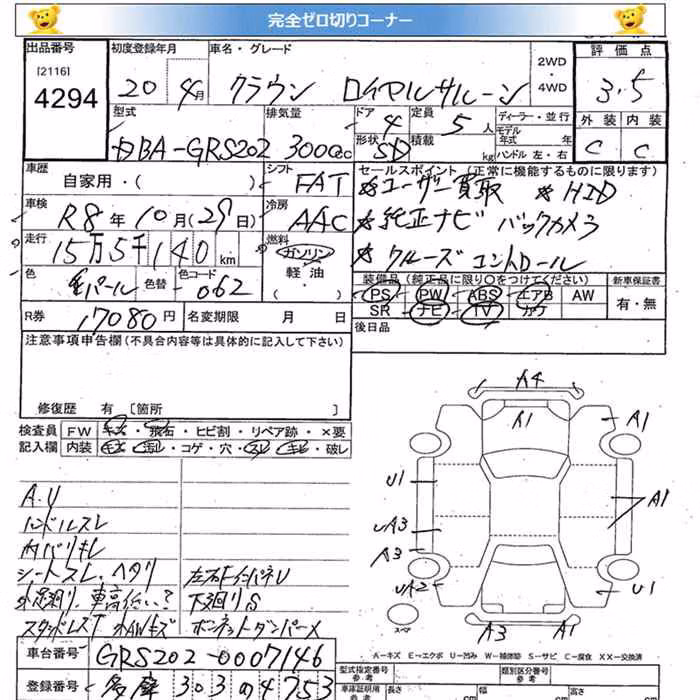 完全ゼロ切りコーナー
出品番号 初度登録年月 車名・グレード 2WD・4WD 評価点
[2116] 4294 20 4月 クラウン ロイヤルサルーン 3.5
型式 排気量 ドア 定員 ディーラー・並行 外装 内装
DBA-GRS202 3000cc 4 5人 モデル年式 年 C C
形状 SD 積載 kg ハンドル 左・右
車歴 シフト セールスポイント(正常に機能するものに限ります)
自家用・( ) FAT ユーザー買取 HID
車検 冷房 純正ナビ バックカメラ
R8年10月(29日) AAC クルーズコントロール
走行 燃料
15万5千140km ガソリン
軽油・( )
色 色替 色コード 装備品(純正品に限り○をつけてください) 新車保証書
パール 062 PS PW ABS エアB AW 有・無
R券 17080円 名変期限 月 日 SR ナビ TV カワ
注意事項申告欄(不具合内容等は具体的に記入して下さい) 後日品
修復歴 有[箇所 ]
検査員 FW キズ・飛石・ヒビ割・リペア跡・×要
記入欄 内装 キズ・汚れ・コゲ・穴・スレ・キレ・破レ
A.U
ハンドルスレ
内バリキレ
シートスレ、ヘタリ
車高低い?
スタッドレスT AWキズ
下廻りS
ボンネットダンパー×
A4
A1
A1
U1
A1
UA3
A3
UA2
U1
A3 A1
スペア
A=キズ E=エクボ U=凹み W=補修跡 S=サビ C=腐食 XX=交換済
車台番号 GRS202-0007146 型式指定番号 参考 類別区分番号 参考
登録番号 多摩 303 の 4753 車庫証明用 参考 長さ 幅 高さ